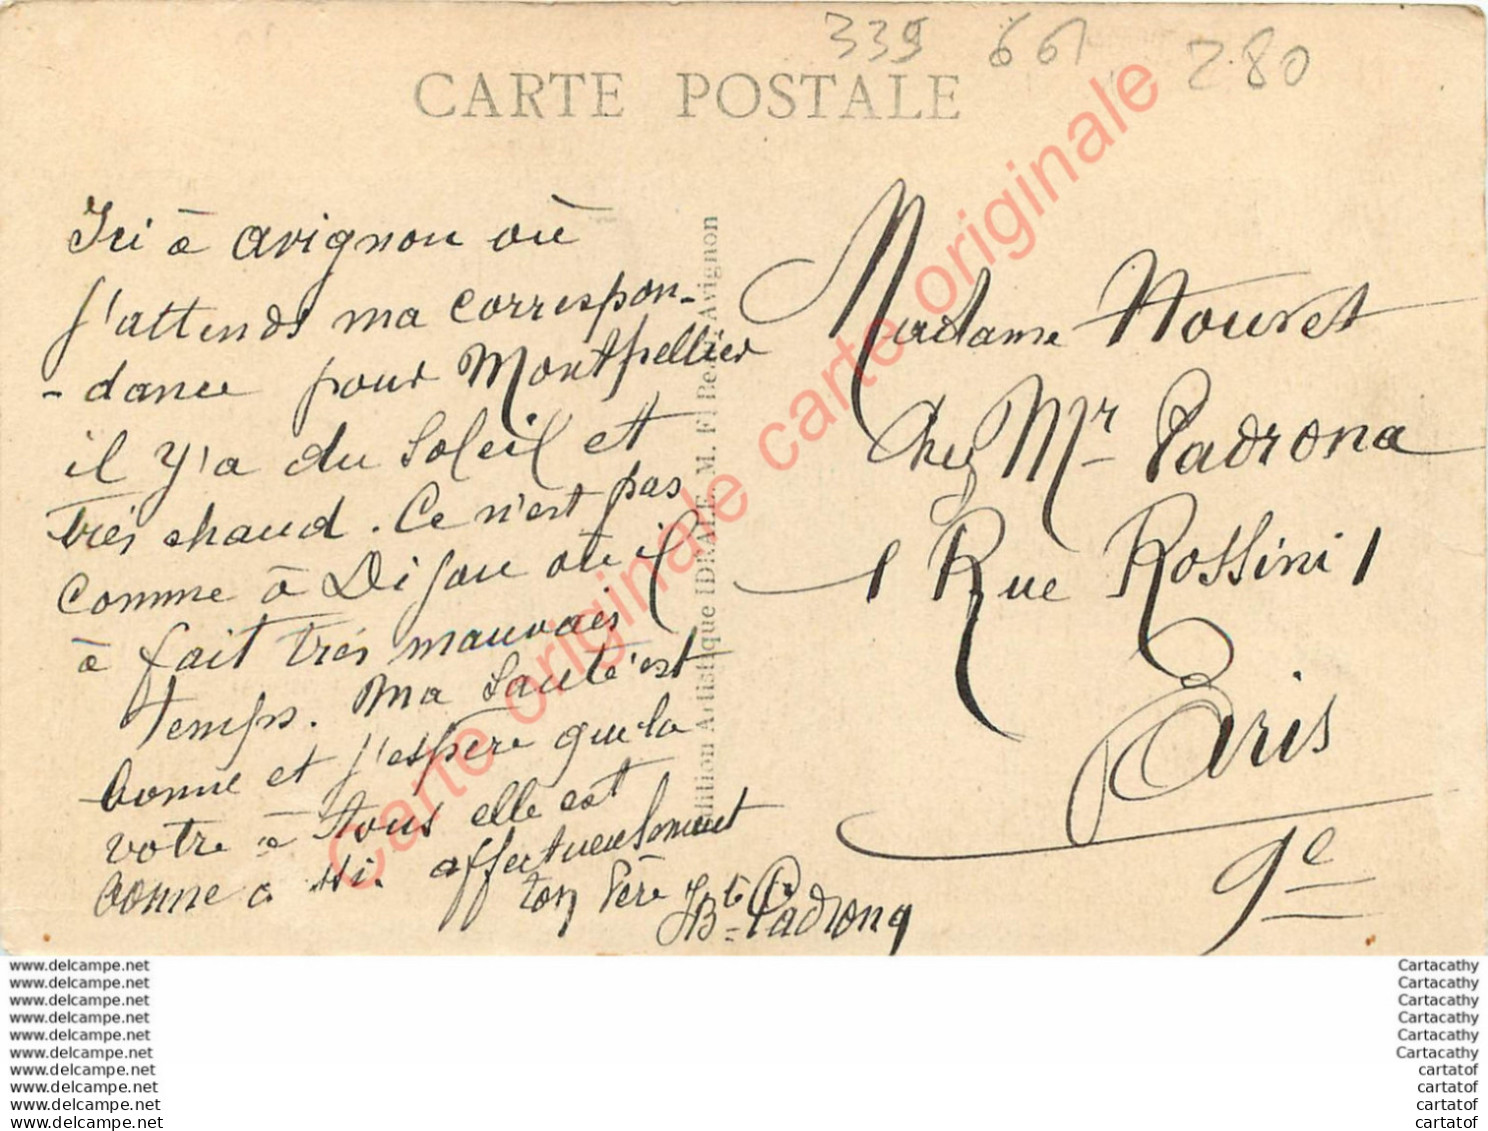 339 661 280
CARTE POSTALE
Ici à avignon où
j'attends ma correspon-
-dance pour Montpellier
il y'a du soleil et
très chaud. Ce n'est pas
comme à Dijon où il
à fait très mauvais
temps. Ma santé est
bonne et j'espère que la
votre à tous elle est
bonne a ssi. affectueusement
ton Père JBte Padrona
Edition Artistique IDRALE. M. F Be Avignon
Madame Houret
chez Mr Padrona
1 Rue Rossini 1
Paris
9e
Carte originale carte originale
www.delcampe.net
www.delcampe.net
www.delcampe.net
www.delcampe.net
www.delcampe.net
www.delcampe.net
www.delcampe.net
www.delcampe.net
www.delcampe.net
www.delcampe.net
Cartacathy
Cartacathy
Cartacathy
Cartacathy
Cartacathy
Cartacathy
cartatof
cartatof
cartatof
cartatof